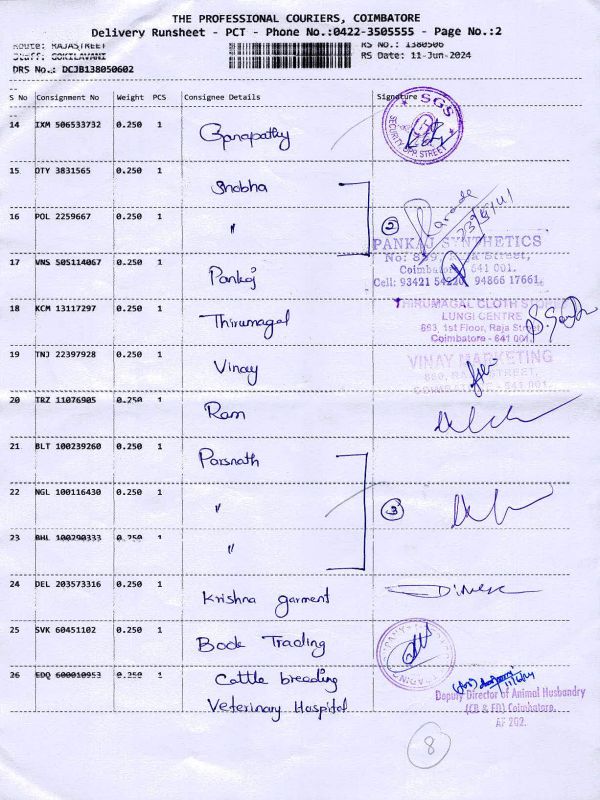 THE PROFESSIONAL COURIERS, COIMBATORE
Delivery Runsheet - PCT - Phone No.:0422-3505555 - Page No.:2
Route: RAJASTREET
RS No.: 1380506
Staff: GOKILAVANI
RS Date: 11-Jun-2024
DRS No.: DCJB138050602
S No Consignment No Weight PCS Consignee Details Signature
14 IXM 506533732 0.250 1 Ganapathy
SGS
SECURITY OPP. STREET
15 OTY 3831565 0.250 1 Shobha
16 POL 2259667 0.250 1 "
2
PANKAJ SYNTHETICS
Street,
17 VNS 505114067 0.250 1 Pankaj
Coimbatore 641 001.
Cell: 93421 54220 94866 17661
18 KCM 13117297 0.250 1 Thirumagal
THIRUMAGAL CLOTH STORE
LUNGI CENTRE
693, 1st Floor, Raja Street
Coimbatore - 641 001.
19 TNJ 22397928 0.250 1 Vinay
VINAY MARKETING
STREET,
641 001.
20 TRZ 11076905 0.250 1 Ram
21 BLT 100239260 0.250 1 Parsnath
22 NGL 100116430 0.250 1 "
3
23 BHL 100290333 0.250 1 "
24 DEL 203573316 0.250 1 Krishna garment
Dinesh
25 SVK 60451102 0.250 1 Book Trading
26 EDQ 600010953 0.250 1 Cattle breeding
Veterinary Hospital
Deputy Director of Animal Husbandry
(CB & FD) Coimbatore.
AF 202.
8